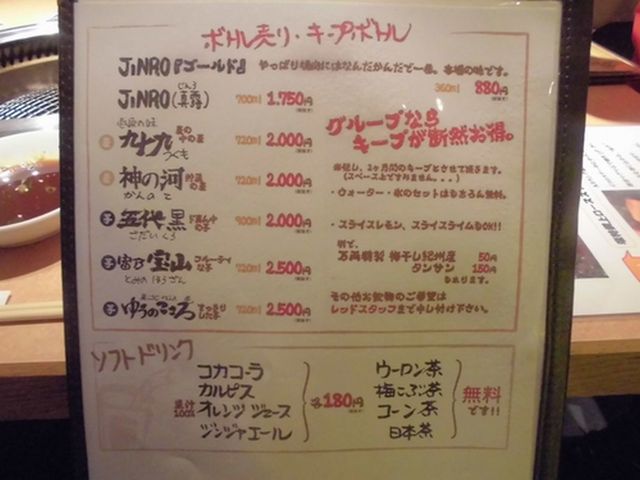 ボトル売り・キープボトル
JiNRO『ゴールド』 やっぱり焼肉にはなんだかんだで一番。本場の味です。
360ml 880円
じんろ
JiNRO(真露) 700ml 1.750円
九十九 720ml 2.000円
つくも
神の河 貯蔵の麦 720ml 2.000円
かんのこ
芋 五代 黒 900ml 2.000円
さだいくろ
芋 富乃宝山 フルーティな芋 720ml 2.500円
とみのほうざん
芋 ゆうのこころ すっきりした芋 720ml 2.500円
グループなら
キープが断然お得。
※但し、2ヶ月間のキープとさせて頂きます。
(スペース上ですみません...)
・ウォーター・氷のセットはもちろん無料。
・スライスレモン、スライスライムもOK!!
別で、
万両特製 梅干し紀州産 50円
タンサン 150円
もあります。
その他お飲物のご希望は
レッドスタッフまで申し付け下さい。
ソフトドリンク
コカコーラ
カルピス
果汁100% オレンジジュース
ジンジャエール
各180円
ウーロン茶
梅こぶ茶
コーン茶
日本茶
無料
です!!